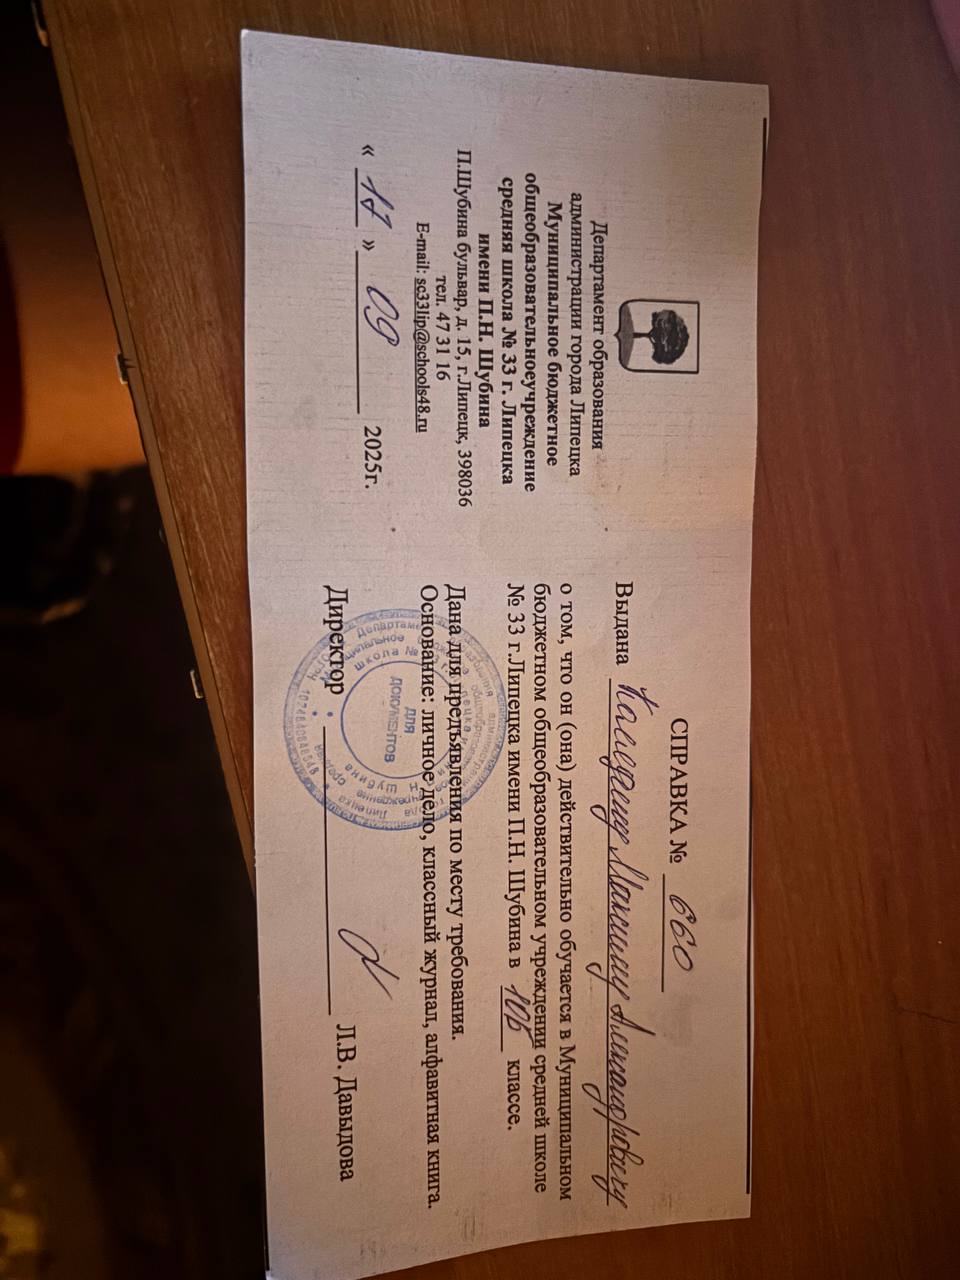 Департамент образования
администрации города Липецка
Муниципальное бюджетное
общеобразовательноеучреждение
средняя школа № 33 г. Липецка
имени П.Н. Шубина
П.Шубина бульвар, д. 15, г.Липецк, 398036
тел. 47 31 16
E-mail: sc33lip@schools48.ru
« 17 » 09 2025г.
СПРАВКА № 660
Выдана Каледину Максиму Александровичу
о том, что он (она) действительно обучается в Муниципальном
бюджетном общеобразовательном учреждении средней школе
№ 33 г.Липецка имени П.Н. Шубина в 10Б классе.
Дана для предъявления по месту требования.
Основание: личное дело, классный журнал, алфавитная книга.
Директор Л.В. Давыдова
для
документов